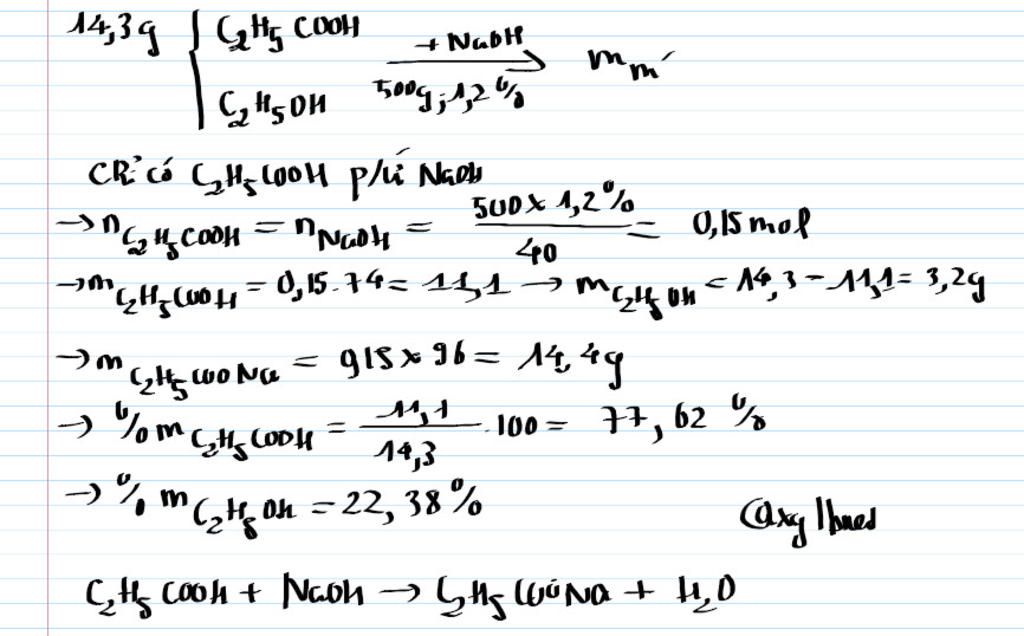 14,3g { C₂H₅COOH + NaOH m m'
C₂H₅OH 500g; 1,2%
CR: có C₂H₅COOH p/ứ NaOH
→ n C₂H₅COOH = n NaOH = 500 x 1,2% / 40 = 0,15 mol
→ m C₂H₅COOH = 0,15.74 = 11,1 → m C₂H₅OH = 14,3 - 11,1 = 3,2g
→ m C₂H₅COONa = 0,15 x 96 = 14,4g
→ %m C₂H₅COOH = 11,1 / 14,3 .100 = 77,62 %
→ % m C₂H₅OH = 22,38%
C₂H₅COOH + NaOH → C₂H₅COONa + H₂O